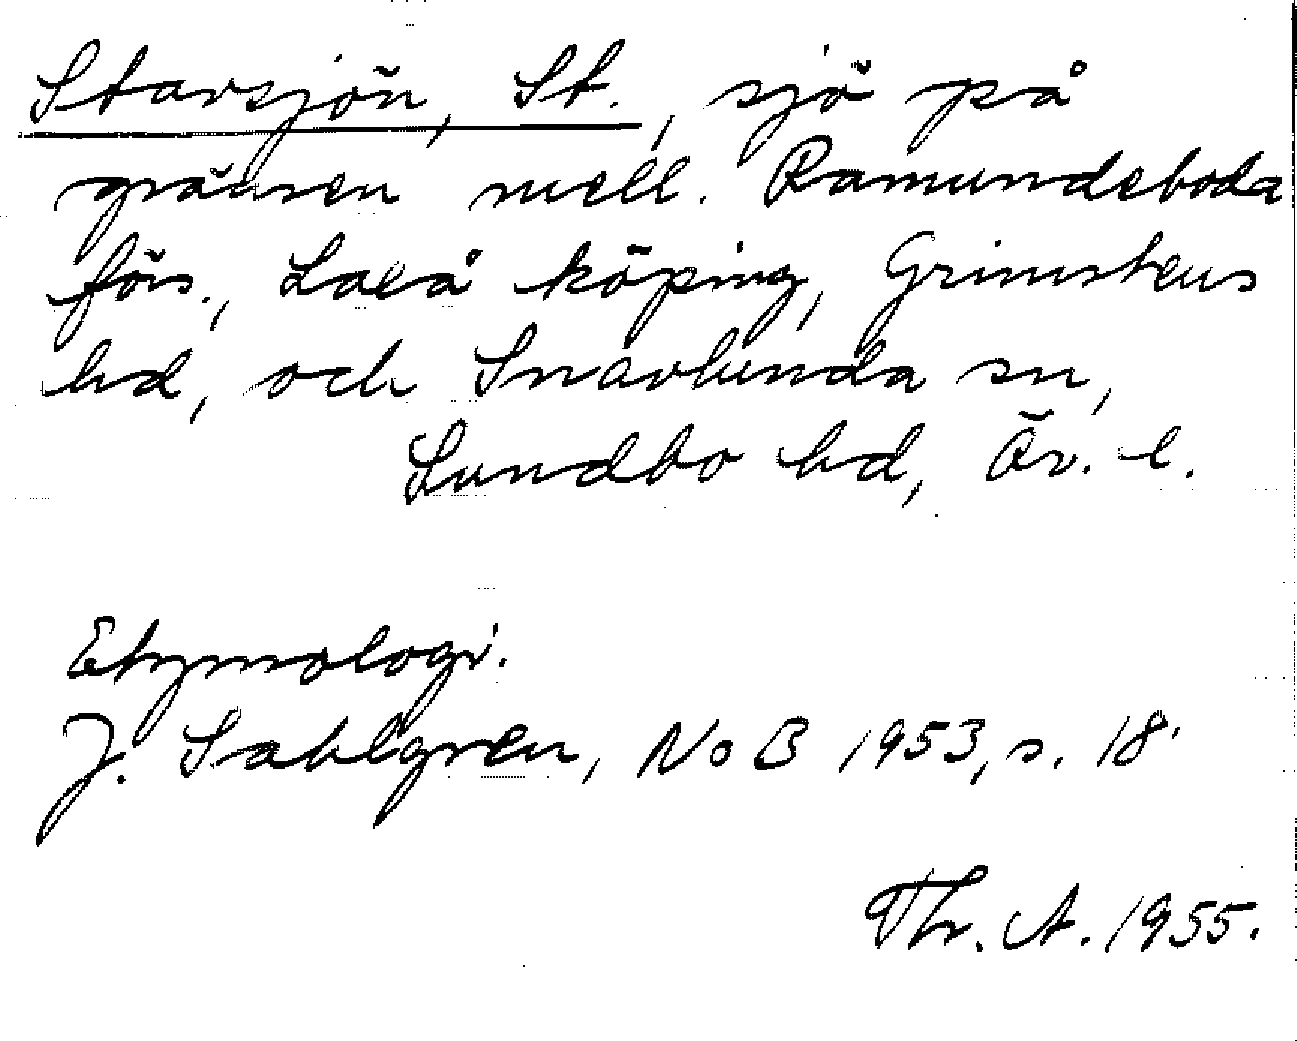 Stavsjön, St., sjö på
gränsen mell. Ramundeboda
förs., Laxå köping, Grimstens
hd, och Snavlunda sn,
Sundbo hd, Ör. l.
Etymologi.
J. Sahlgren, NoB 1953, s. 18.
Thr. A. 1955.